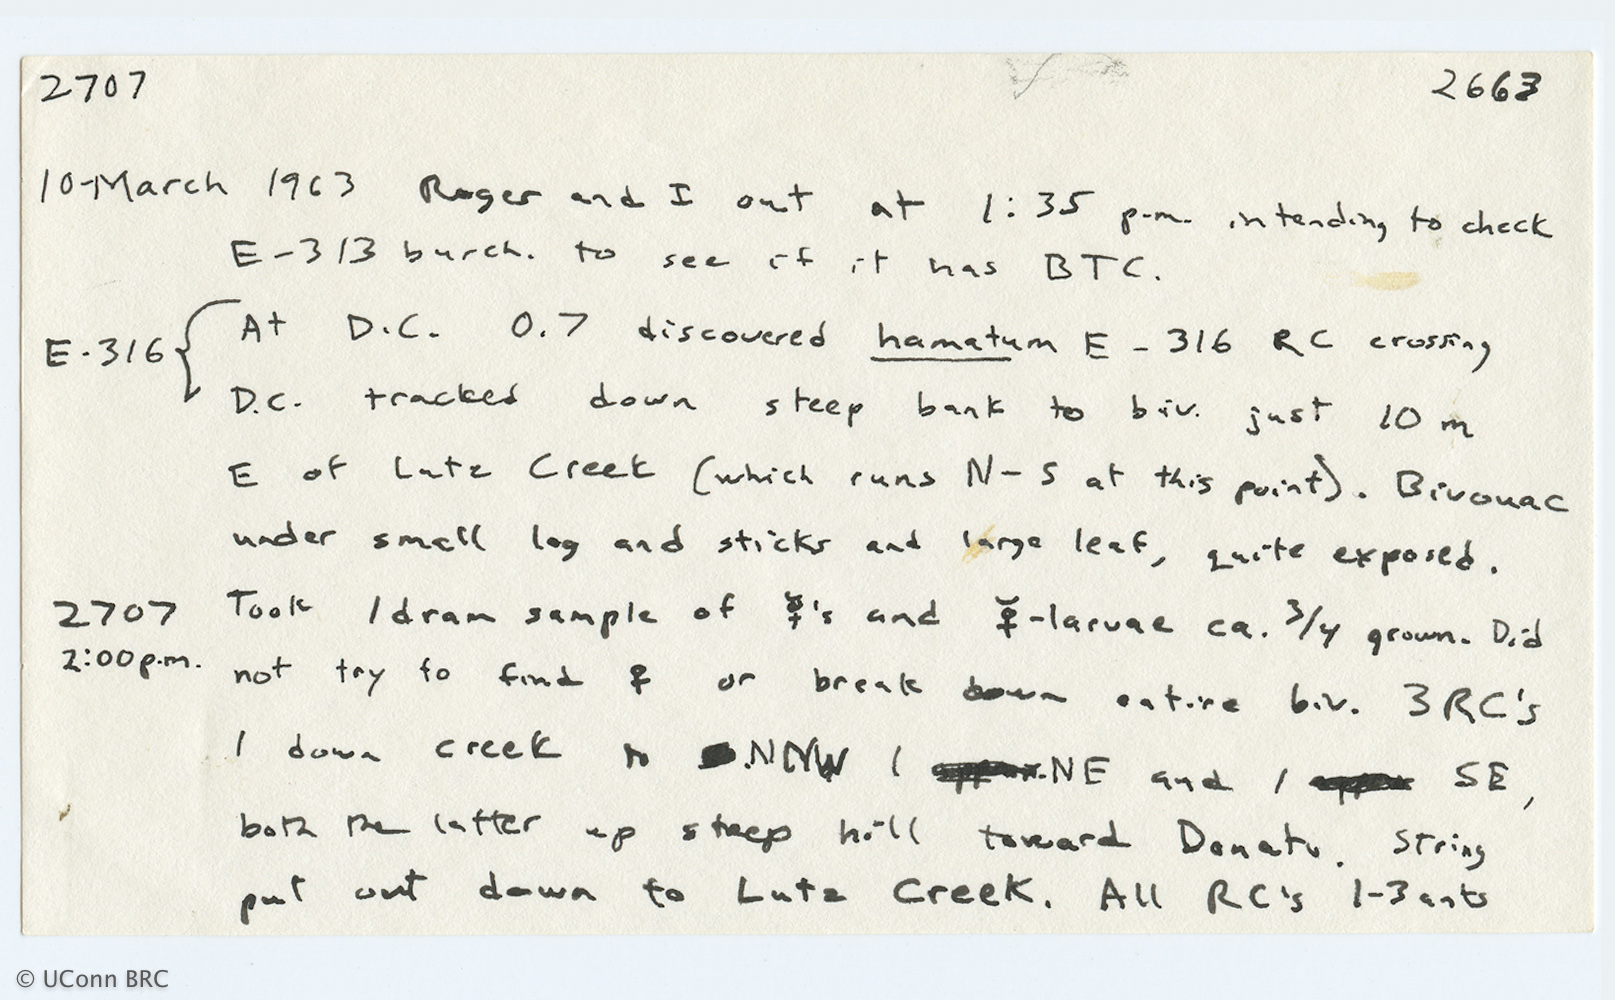 2707 2663
10-March 1963 Roger and I out at 1:35 p.m. intending to check
E-313 burch. to see if it has BTC.
E-316 { At D.C. 0.7 discovered hamatum E-316 RC crossing
D.C. tracked down steep bank to biv. just 10 m
E of Lutz Creek (which runs N-S at this point). Bivouac
under small log and sticks and large leaf, quite exposed.
2707 Took 1 dram sample of ☿'s and ☿-larvae ca. 3/4 grown. Did
2:00 p.m. not try to find ♀ or break down entire biv. 3 RC's
1 down creek to NNW 1 NE and 1 SE,
both the latter up steep hill toward Donato. String
put out down to Lutz Creek. All RC's 1-3 ants
© UConn BRC